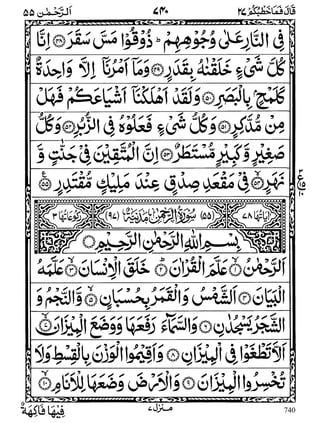 قَالَ فَمَا خَطْبُكُمْ ٢٧ ٧٤٠ اَلرَّحْمٰن ٥٥
فِی النَّارِ عَلٰی وُجُوْهِهِمْ ؕ ذُوْقُوْا مَسَّ سَقَرَ ﴿۴۸﴾ اِنَّا
كُلَّ شَیْءٍ خَلَقْنٰهُ بِقَدَرٍ ﴿۴۹﴾ وَمَاۤ اَمْرُنَاۤ اِلَّا وَاحِدَةٌ
كَلَمْحٍۭ بِالْبَصَرِ ﴿۵۰﴾ وَلَقَدْ اَهْلَكْنَاۤ اَشْیَاعَكُمْ فَهَلْ
مِنْ مُّدَّكِرٍ ﴿۵۱﴾ وَكُلُّ شَیْءٍ فَعَلُوْهُ فِی الزُّبُرِ ﴿۵۲﴾ وَكُلُّ
صَغِیْرٍ وَّكَبِیْرٍ مُّسْتَطَرٌ ﴿۵۳﴾ اِنَّ الْمُتَّقِیْنَ فِیْ جَنّٰتٍ وَّ
نَهَرٍ ﴿۵۴﴾ فِیْ مَقْعَدِ صِدْقٍ عِنْدَ مَلِیْكٍ مُّقْتَدِرٍ ﴿۵۵﴾
اٰیَاتُهَا ٧٨ (٥٥) سُوْرَةُ الرَّحْمٰنِ مَدَنِیَّةٌ (٩٧) رُكُوْعَاتُهَا ٣
بِسْمِ اللّٰهِ الرَّحْمٰنِ الرَّحِیْمِ
اَلرَّحْمٰنُ ﴿۱﴾ عَلَّمَ الْقُرْاٰنَ ﴿۲﴾ خَلَقَ الْاِنْسَانَ ﴿۳﴾ عَلَّمَهُ
الْبَیَانَ ﴿۴﴾ اَلشَّمْسُ وَالْقَمَرُ بِحُسْبَانٍ ﴿۵﴾ وَّالنَّجْمُ وَ
الشَّجَرُ یَسْجُدٰنِ ﴿۶﴾ وَالسَّمَآءَ رَفَعَهَا وَوَضَعَ الْمِیْزَانَ ﴿۷﴾
اَلَّا تَطْغَوْا فِی الْمِیْزَانِ ﴿۸﴾ وَاَقِیْمُوا الْوَزْنَ بِالْقِسْطِ وَلَا
تُخْسِرُوا الْمِیْزَانَ ﴿۹﴾ وَالْاَرْضَ وَضَعَهَا لِلْاَنَامِ ﴿۱۰﴾
فِیْهَا فَاكِهَةٌ
منزل ٧
740